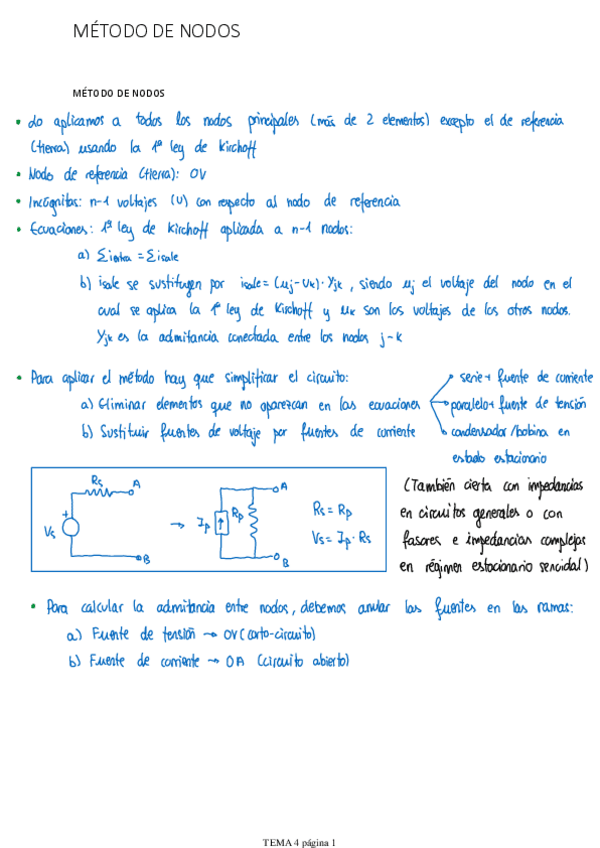 MÉTODO DE NODOS
MÉTODO DE NODOS
• Lo aplicamos a todos los nodos principales (más de 2 elementos) excepto el de referencia
(tierra) usando la 1ª ley de Kirchoff
• Nodo de referencia (tierra): 0V
• Incógnitas: n-1 voltajes (U) con respecto al nodo de referencia
• Ecuaciones: 1ª ley de Kirchoff aplicada a n-1 nodos:
a) Σientra = Σisale
b) isale se sustituyen por isale = (uj - uk)·Yjk, siendo uj el voltaje del nodo en el
cual se aplica la 1ª ley de Kirchoff y uk son los voltajes de los otros nodos.
Yjk es la admitancia conectada entre los nodos j-k
• Para aplicar el método hay que simplificar el circuito:
a) Eliminar elementos que no aparezcan en las ecuaciones
serie + fuente de corriente
paralelo + fuente de tensión
condensador/bobina en
estado estacionario
b) Sustituir fuentes de voltaje por fuentes de corriente
Rs A
Vs + B
→ Ip Rp A
B
Rs = Rp
Vs = Ip · Rs
(También cierta con impedancias
en circuitos generales o con
fasores e impedancias complejas
en régimen estacionario senoidal)
• Para calcular la admitancia entre nodos, debemos anular las fuentes en las ramas:
a) Fuente de tensión → 0V (corto-circuito)
b) Fuente de corriente → 0A (circuito abierto)
TEMA 4 página 1